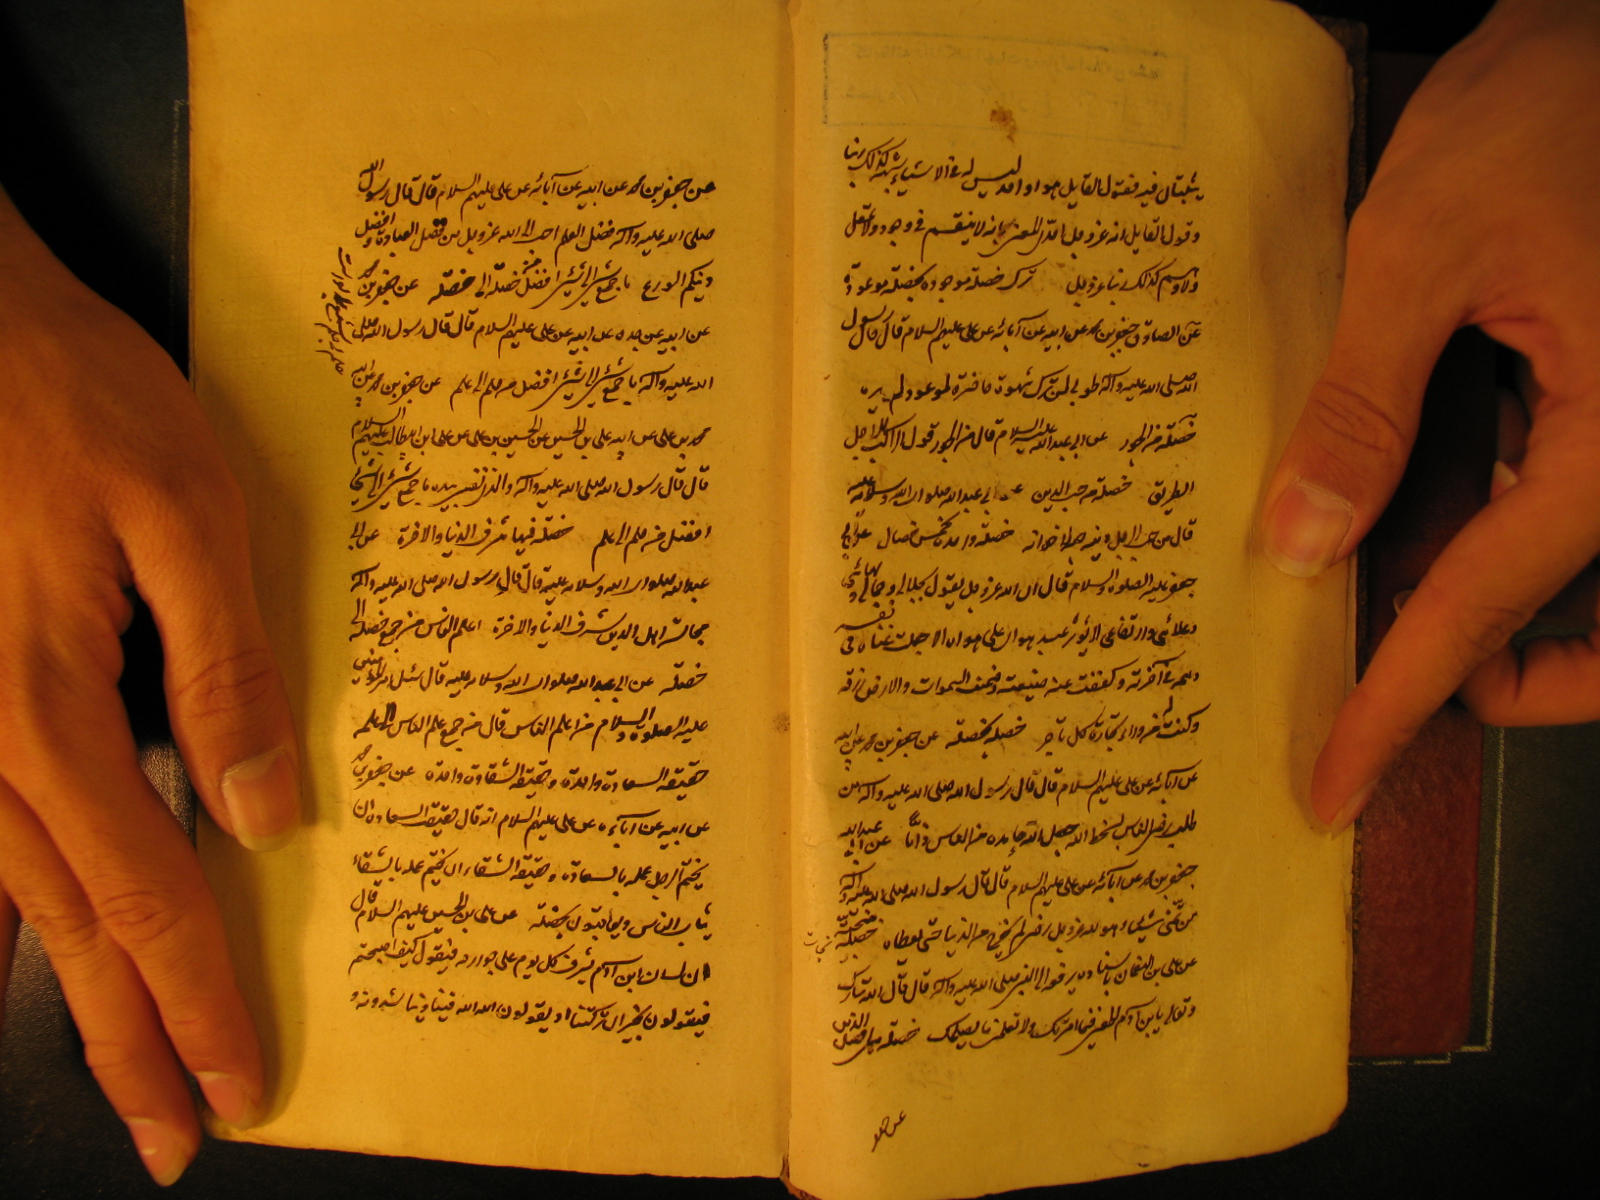 يثبتان فيه فقول القايل هو واحد ليس له في الاشياء شبه كذلك ربنا
وقول القايل انه عز وجل احدي المعنى يعني به انه لا ينقسم في وجود ولا عقل
ولا وهم كذلك ربنا عز وجل ترك خصلة موجودة بخصلة موعودة
عن الصادق جعفر بن محمد عن ابيه عن آبائه عن علي عليهم السلام قال قال رسول
الله صلى الله عليه وآله طوبى لمن ترك شهوة حاضرة لموعود لم يره
خصلة من الجور عن ابي عبد الله عليه السلام قال من الجور قول الراكب للراجل
الطريق خصلة من حب الدين عن ابي عبد الله صلوات الله وسلامه عليه
قال من حب الرجل دينه حبه لاخوانه خصلة واحدة بخمس خصال عن ابي
جعفر عليه الصلوة والسلام قال ان الله عز وجل يقول بجلالي وجمالي وبهائي
وعلائي وارتفاعي لا يؤثر عبد هواي على هواه الا جعلت غناه في نفسه
وهمه في آخرته وكففت عنه ضيعته وضمنت السموات والارض رزقه
وكنت له من وراء تجارة كل تاجر خصلة بخصلة عن جعفر بن محمد عن ابيه
عن آبائه عن علي عليهم السلام قال قال رسول الله صلى الله عليه وآله من
طلب رضى الناس بسخط الله جعل الله حامده من الناس ذاما عن ابي عبد الله
جعفر بن محمد عن آبائه عن علي عليهم السلام قال قال رسول الله صلى الله عليه وآله
من تمنى شيئا وهو لله عز وجل رضى لم يخرج من الدنيا حتى يعطاه خصلة
عن علي بن النعمان باسناده يرفعه الى النبي صلى الله عليه وآله قال قال الله تبارك
وتعالى يابن آدم اطعني فيما امرتك ولا تعلمني ما يصلحك خصلة هي افضل الدين
عن جعفر بن محمد عن ابيه عن آبائه عن علي عليهم السلام قال قال رسول الله
صلى الله عليه وآله فضل العلم احب الى الله عز وجل من فضل العبادة وافضل
دينكم الورع ما جمع شئ الى شئ افضل من خصلة الى خصلة عن جعفر بن محمد
عن ابيه عن جده عن ابيه عن علي عليهم السلام قال قال رسول الله صلى
الله عليه وآله ما جمع شئ الى شئ افضل من حلم الى علم عن جعفر بن محمد عن ابيه
محمد بن علي عن ابيه علي بن الحسين عن الحسين بن علي عن علي بن ابيطالب عليهم السلام
قال قال رسول الله صلى الله عليه وآله والذي نفسي بيده ما جمع شئ الى شئ
افضل من حلم الى علم خصلة فيها شرف الدنيا والاخرة عن ابي
عبد الله صلوات الله وسلامه عليه قال قال رسول الله صلى الله عليه وآله
مجالسة اهل الدين شرف الدنيا والاخرة اعلم الناس من جمع خصلة الى
خصلة عن ابي عبد الله صلوات الله وسلامه عليه قال سئل امير المؤمنين
عليه الصلوة والسلام من اعلم الناس قال من جمع علم الناس الى علمه
حقيقة السعادة واحدة وحقيقة الشقاوة واحدة عن جعفر بن محمد
عن ابيه عن آبائه عن علي عليهم السلام انه قال حقيقة السعادة ان
يختم الرجل عمله بالسعادة وحقيقة الشقاء ان يختم عمله بالشقاء
يثاب الناس ويعاقبون بخصلة عن علي بن الحسين عليهم السلام قال
ان لسان ابن آدم يشرف كل يوم على جوارحه فيقول كيف اصبحتم
فيقولون بخير ان تركتنا ويقولون الله الله فينا ويناشدونه و